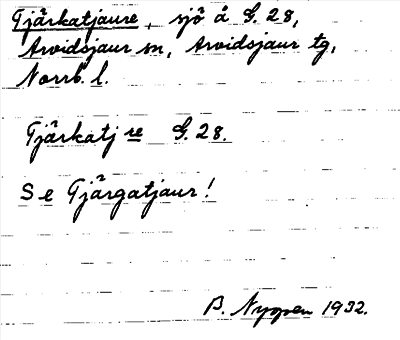 Tjärkatjaure, sjö å G. 28,
Arvidsjaur sn, Arvidsjaur tg,
Norrb. l.
Tjärkatj re G. 28.
Se Tjärgatjaur!
B. Nygren 1932.